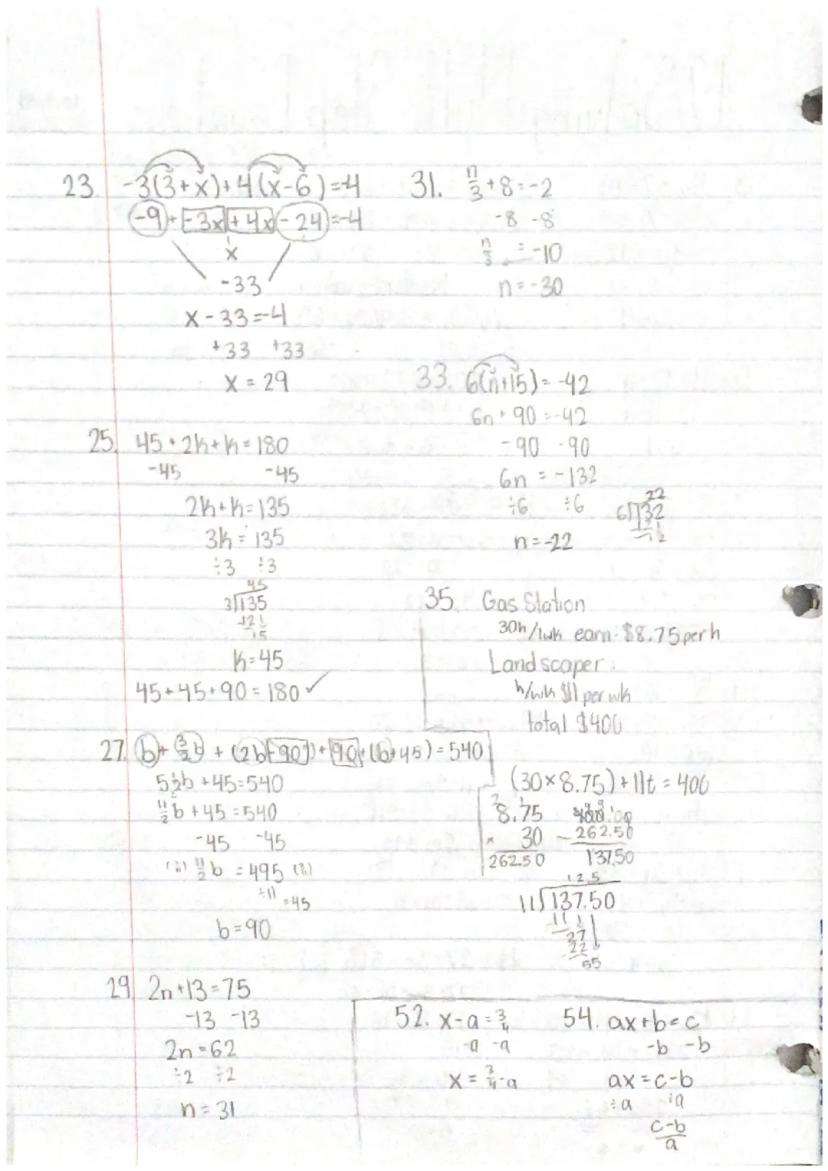 23. -3(3+x)+4(x-6)=-4
-9+-3x+4x-24=-4
x
-33
x-33=-4
+33 +33
x=29
25. 45+2k+k=180
-45 -45
2k+k=135
3k=135
÷3 ÷3
45
3)135
-12
15
k=45
45+45+90=180✓
27. b+3/2b+(2b-90)+90+(b+45)=540
5 1/2b+45=540
11/2b+45=540
-45 -45
11/2b=495
÷11
=45
b=90
29. 2n+13=75
-13 -13
2n=62
÷2 ÷2
n=31
31. n/3+8=-2
-8 -8
n/3=-10
n=-30
33. 6(n+15)=-42
6n+90=-42
-90 -90
6n=-132
÷6 ÷6
22
6)132
-12
n=-22
35. Gas Station
30h/1wk earn: $8.75 per h
Landscaper:
h/wk $11 per wk
total $400
(30×8.75)+11t=400
8.75
× 30
262.50
400.00
-262.50
137.50
12.5
11)137.50
-11
27
-22
55
52. x-a=3/4
-a -a
x=3/4-a
54. ax+b=c
-b -b
ax=c-b
÷a ÷a
c-b/a